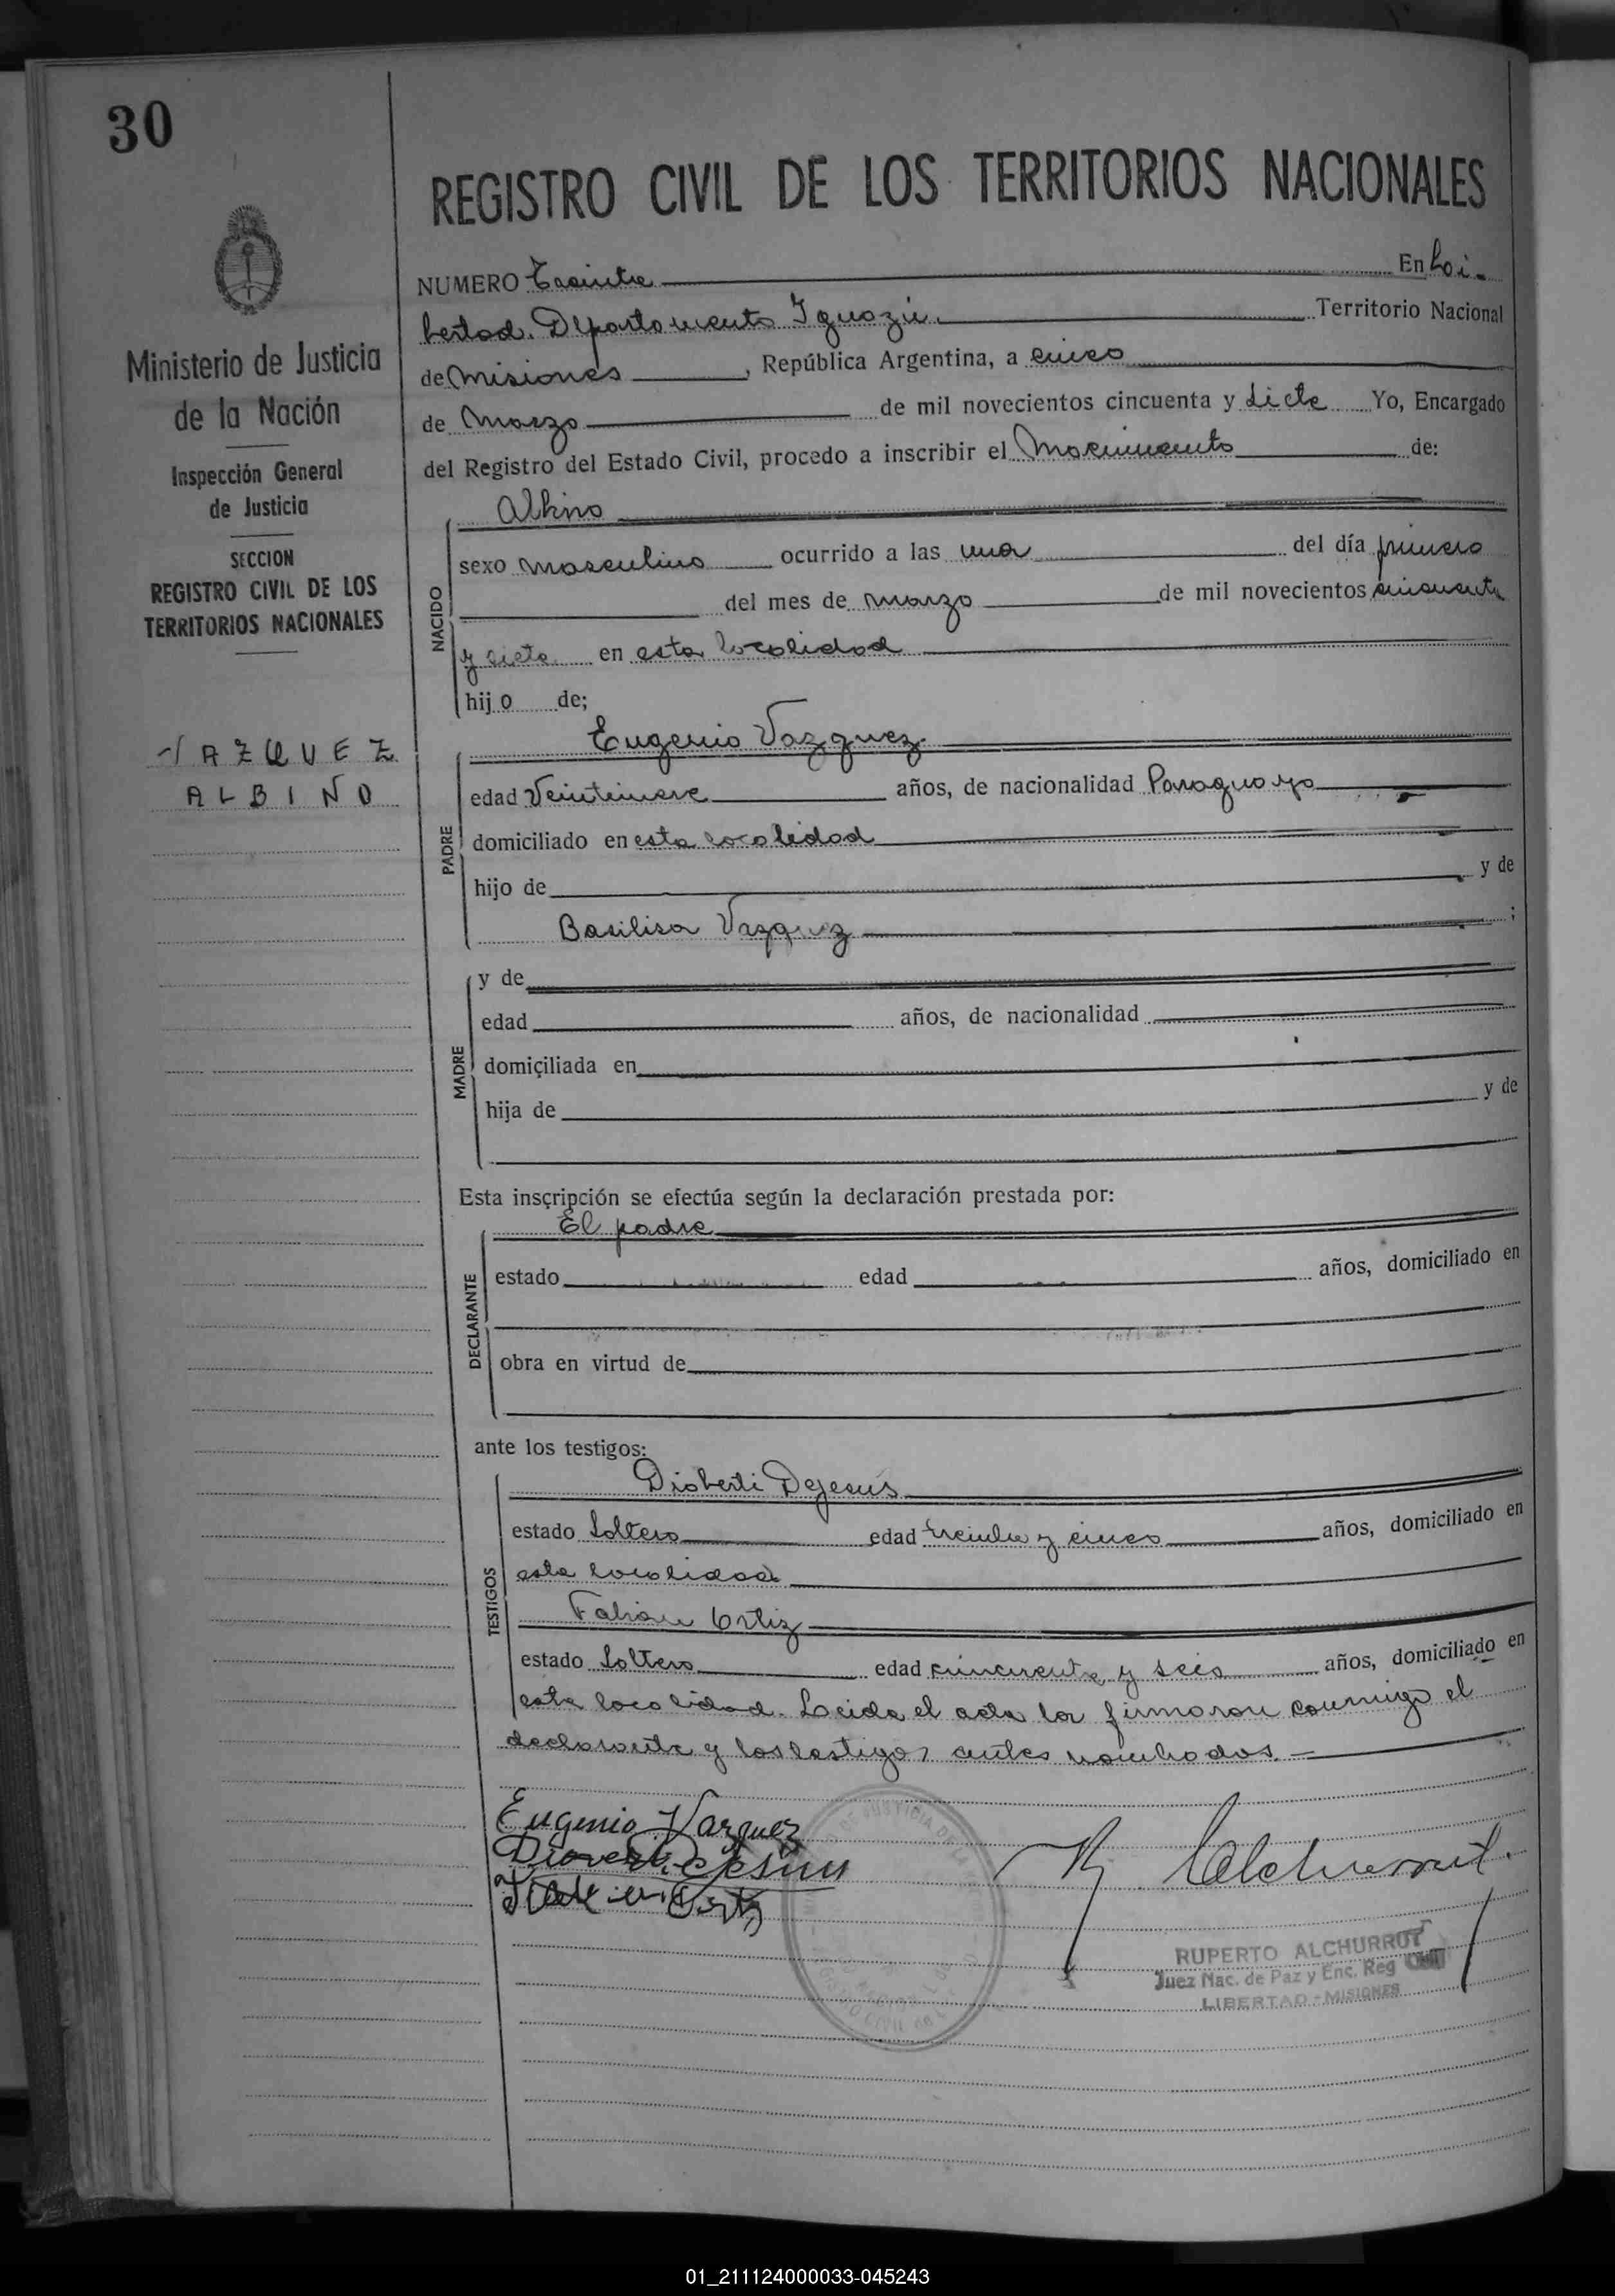 30
REGISTRO CIVIL DE LOS TERRITORIOS NACIONALES
Ministerio de Justicia
de la Nación
Inspección General
de Justicia
SECCION
REGISTRO CIVIL DE LOS
TERRITORIOS NACIONALES
VAZQUEZ
ALBINO
NUMERO Treinta En Loi-
bertad. Departamento Iguazú. Territorio Nacional
de Misiones, República Argentina, a cinco
de Marzo de mil novecientos cincuenta y siete Yo, Encargado
del Registro del Estado Civil, procedo a inscribir el Nacimiento de:
NACIDO
Albino
sexo masculino ocurrido a las una del día primero
del mes de marzo de mil novecientos cincuenta
y siete en esta localidad
hijo de;
PADRE
Eugenio Vazquez
edad años, de nacionalidad Paraguaya
domiciliado en esta localidad
hijo de y de
Basilisa Vazquez ;
MADRE
y de
edad años, de nacionalidad
domiciliada en
hija de y de
Esta inscripción se efectúa según la declaración prestada por:
DECLARANTE
El padre
estado edad años, domiciliado en
obra en virtud de
ante los testigos:
TESTIGOS
Dioberti Dejesús
estado Soltero edad treinta y cinco años, domiciliado en
esta localidad
Fabian Ortiz
estado Soltero edad cincuenta y seis años, domiciliado en
esta localidad. Leida el acta la firmaron conmigo el
declarante y los testigos antes nombrados.
Eugenio Vazquez
R. Alchurrut.
RUPERTO ALCHURRUT
Juez Nac. de Paz y Enc. Reg Civil
LIBERTAD - MISIONES
01_211124000033-045243